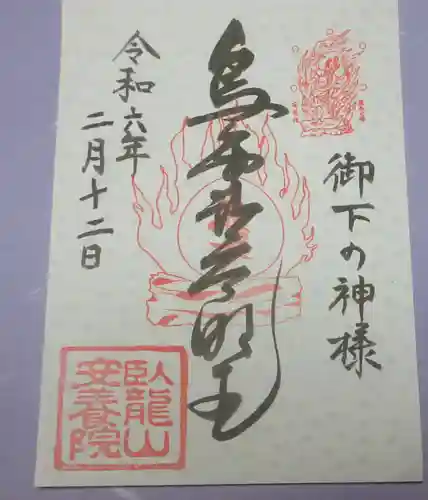 御下の神様
烏芻沙摩明王
令和六年
二月十二日
臥龍山
安養院